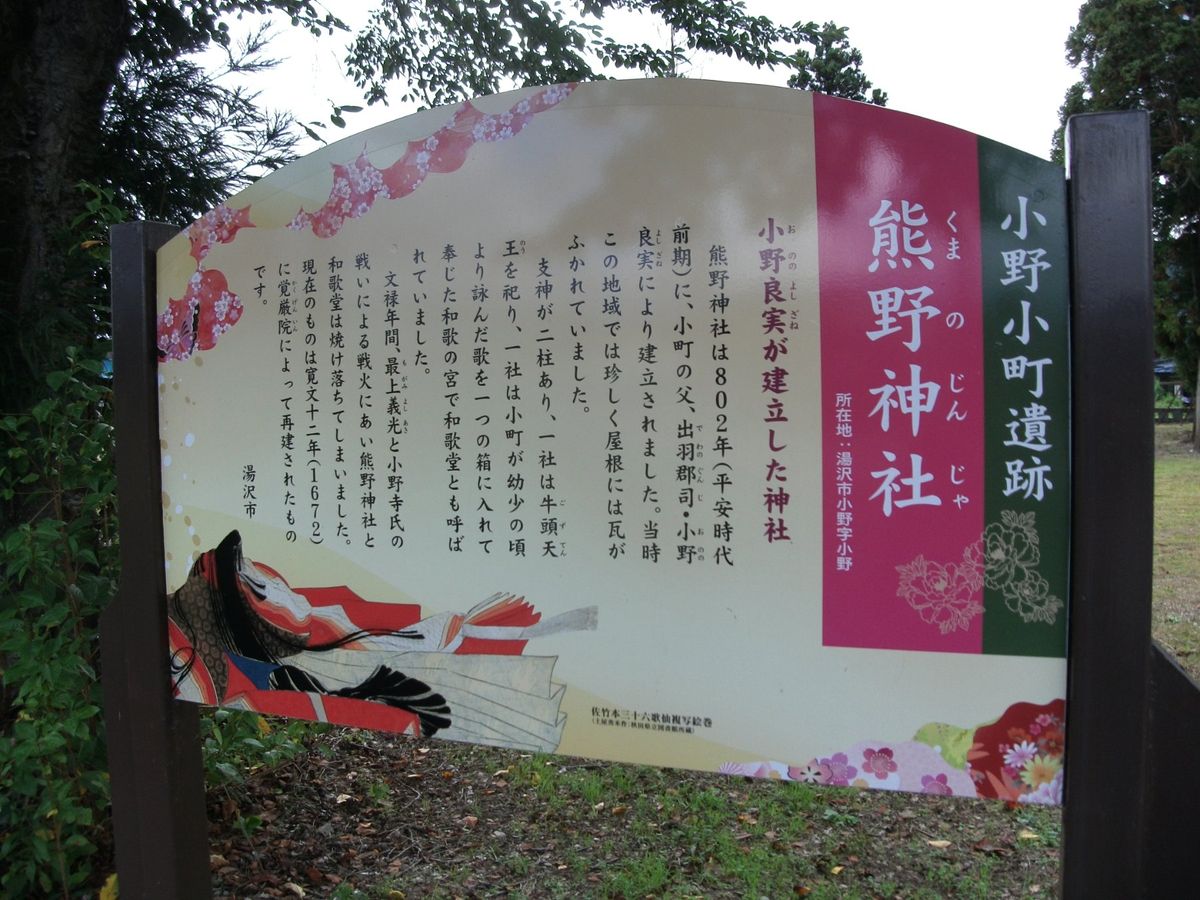 小野小町遺跡
くまのじんじゃ
熊野神社
所在地：湯沢市小野字小野
おののよしざね
小野良実が建立した神社
熊野神社は802年（平安時代
前期）に、小町の父、出羽郡司・小野
でわのぐんじ おのの
良実により建立されました。当時
よしざね
この地域では珍しく屋根には瓦が
ふかれていました。
支神が二柱あり、一社は牛頭天
ごずてん
王を祀り、一社は小町が幼少の頃
のう
より詠んだ歌を一つの箱に入れて
奉じた和歌の宮で和歌堂とも呼ば
れていました。
文禄年間、最上義光と小野寺氏の
もがみよしあき
戦いによる戦火にあい熊野神社と
和歌堂は焼け落ちてしまいました。
現在のものは寛文十二年（1672）
に覚厳院によって再建されたもの
かくげんいん
です。
湯沢市
佐竹本三十六歌仙複写絵巻